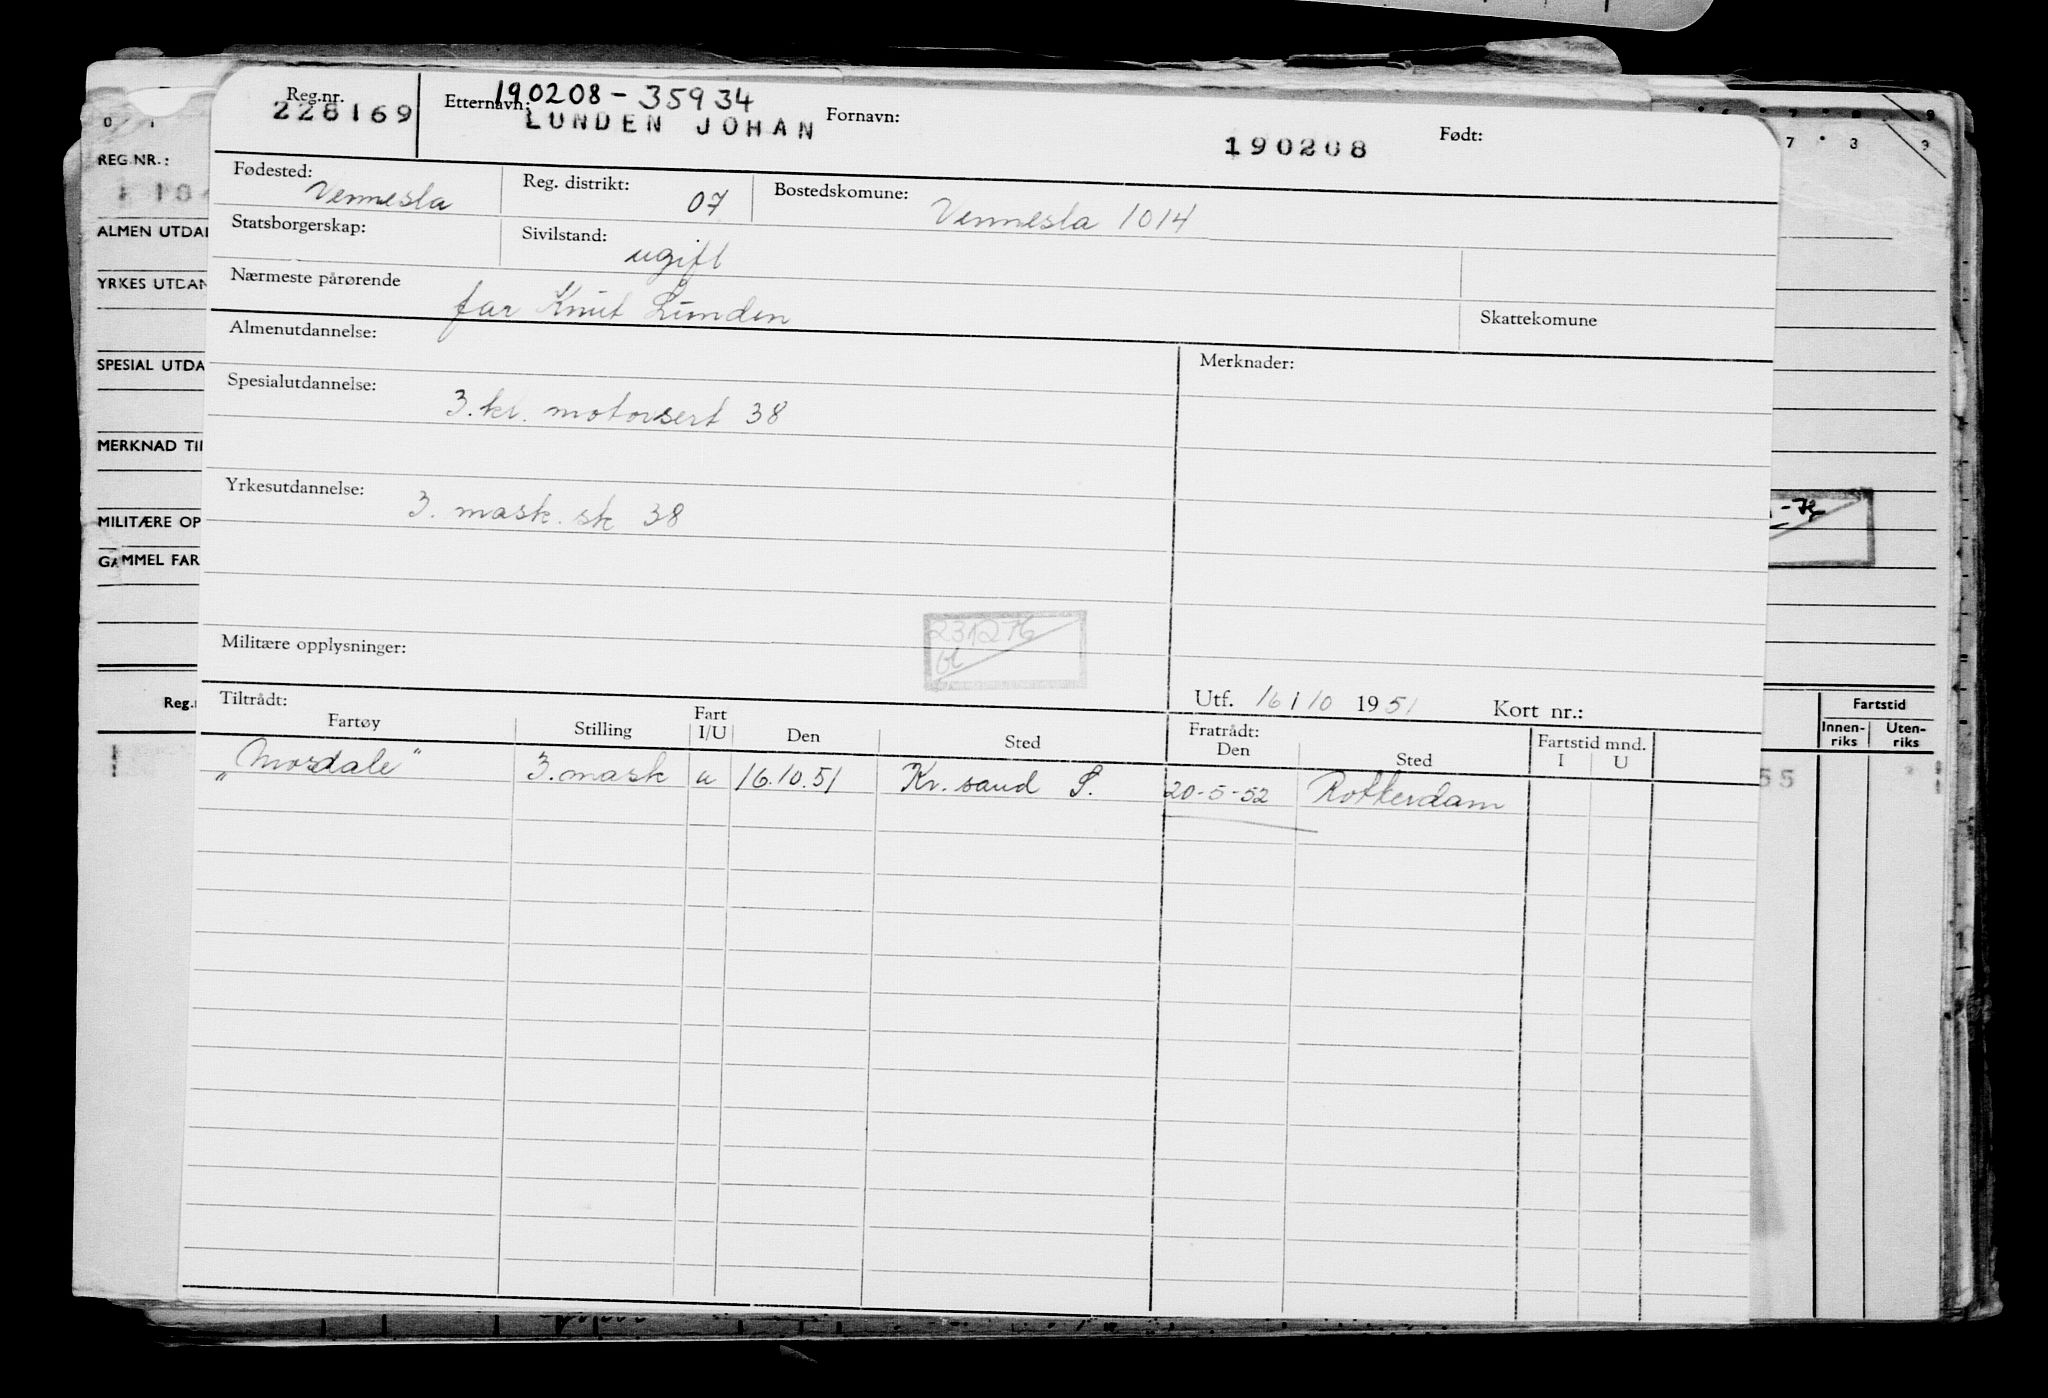 Reg.nr. 228169 Etternavn: 190208-35934 LUNDEN JOHAN Fornavn: Født: 190208
Fødested: Vennesla Reg. distrikt: 07 Bostedskomune: Vennesla 1014
Statsborgerskap: Sivilstand: ugift
Nærmeste pårørende far Knut Lunden Skattekomune
Almenutdannelse: Merknader:
Spesialutdannelse: 3. kl. motorsert 38
Yrkesutdannelse: 3. mask. sk 38
Militære opplysninger: 231276
Utf. 16/10 1951 Kort nr.:
Tiltrådt: Fratrådt:
Fartøy Stilling Fart I/U Den Sted Den Sted Fartstid mnd. I U
"Mosdale" 3. mask u 16.10.51 Kr. sand S. 20-5-52 Rotterdam
REG.NR.:
ALMEN UTDAN
YRKES UTDAN
SPESIAL UTDA
MERKNAD TIL
MILITÆRE OP
GAMMEL FAR
Reg.
Fartstid
Innen-riks Uten-riks
55